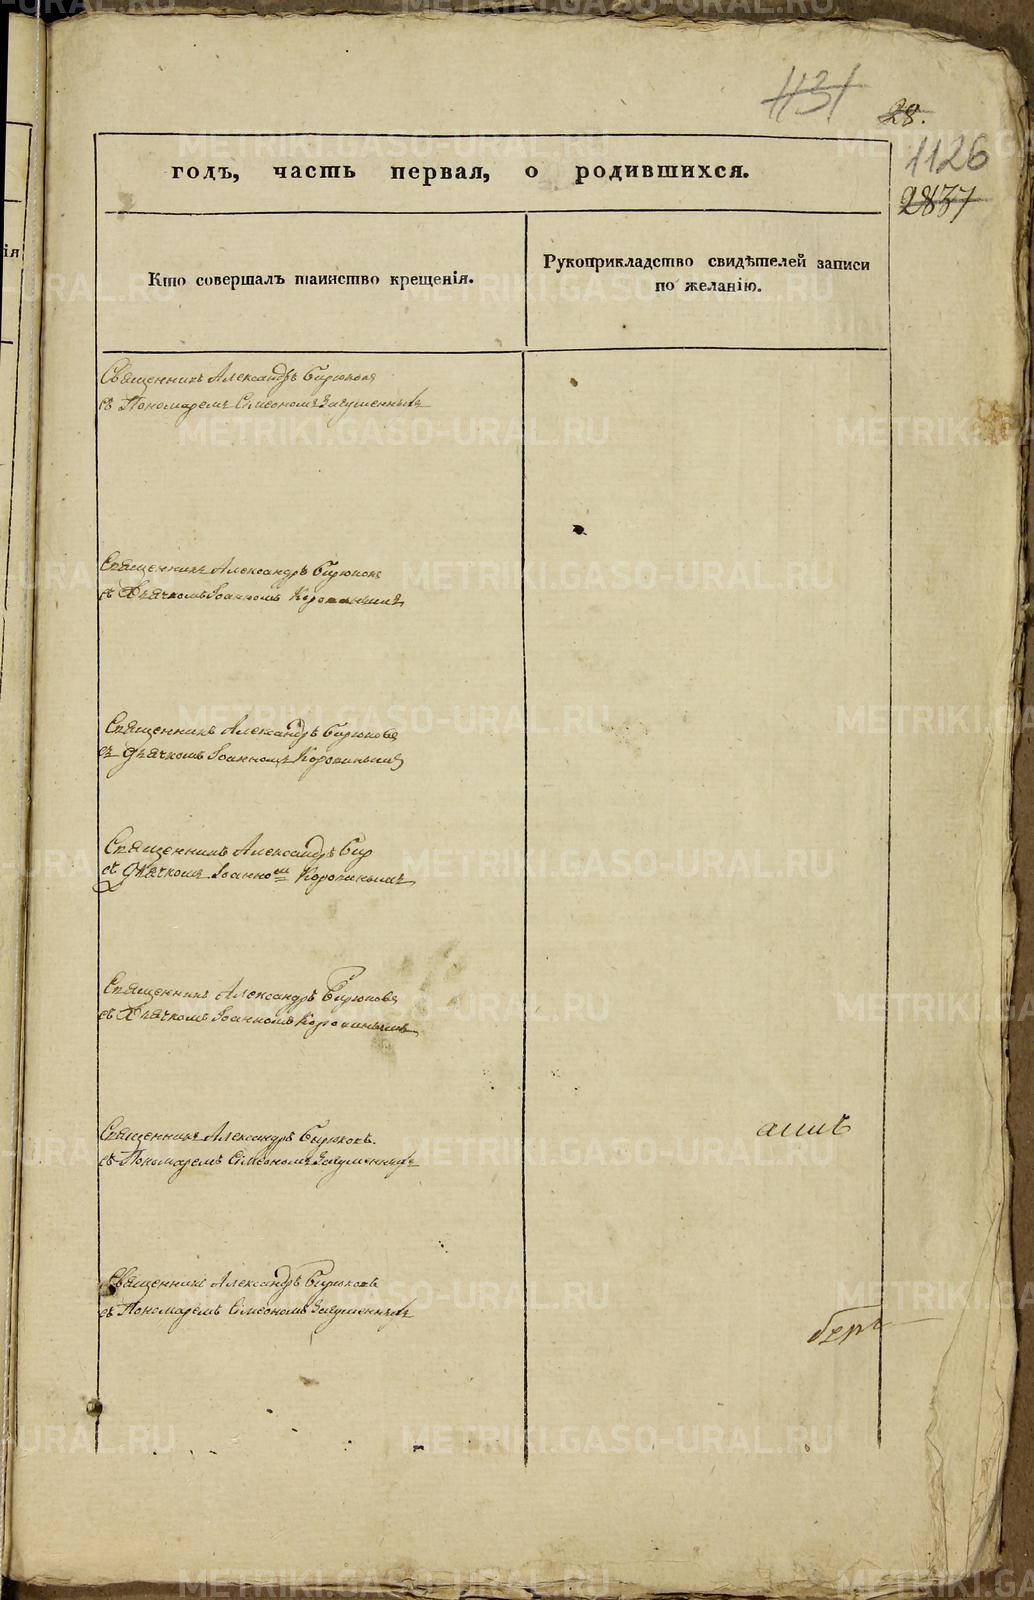 1131
28.
1126
2837
годъ, часть первая, о родившихся.
Кто совершалъ таинство крещенія.
Рукоприкладство свидѣтелей записи
по желанію.
ія
Священникъ Александръ Бирюковъ
съ Пономаремъ Симеономъ
Священникъ Александръ Бирюковъ
съ Дьячкомъ Іоанномъ Коровинымъ
Священникъ Александръ Бирюковъ
съ дьячкомъ Іоанномъ Коровинымъ
Священникъ Александръ Бир
съ дьячкомъ Іоанномъ Коровинымъ
Священникъ Александръ Бирюковъ
съ Дьячкомъ Іоанномъ Коровинымъ
Священникъ Александръ Бирюковъ.
съ Пономаремъ Симеономъ
Священникъ Александръ Бирюковъ
съ Пономаремъ Симеономъ
METRIKI.GASO-URAL.RU